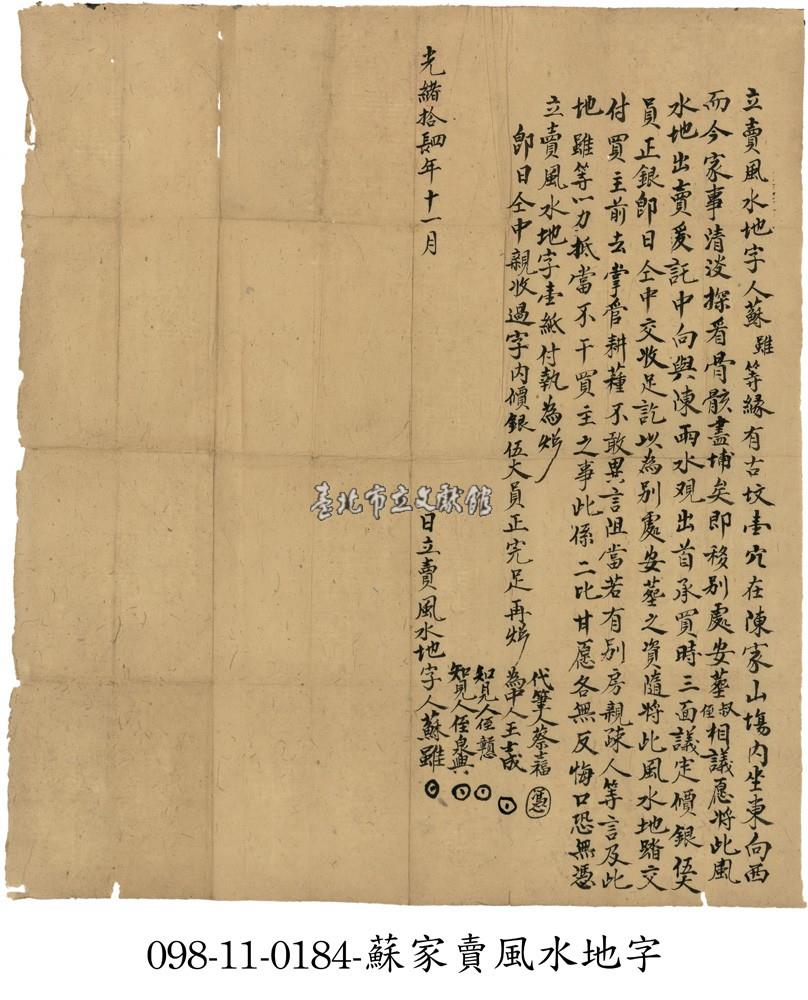 立賣風水地字人蘇雖等緣有古坟壹穴在陳家山塲內坐東向西
而今家事清淡探看骨骸盡埔矣即移別處安塟叔侄相議愿將此風
水地出賣爰託中向與陳雨水观出首承買時三面議定價銀伍大
員正銀即日仝中交收足訖以為別處安塟之資隨將此風水地踏交
付買主前去掌管耕種不敢異言阻當若有別房親疎人等言及此
地雖等一力抵當不干買主之事此係二比甘愿各無反悔口恐無憑
立賣風水地字壹紙付執為炤
即日仝中親收過字內價銀伍大員正完足再炤
代筆人蔡福 憑
為中人王士成
知見人侄
知見人侄泉興
光緒拾肆年十一月 日立賣風水地字人蘇雖
臺北市立文獻館
098-11-0184-蘇家賣風水地字